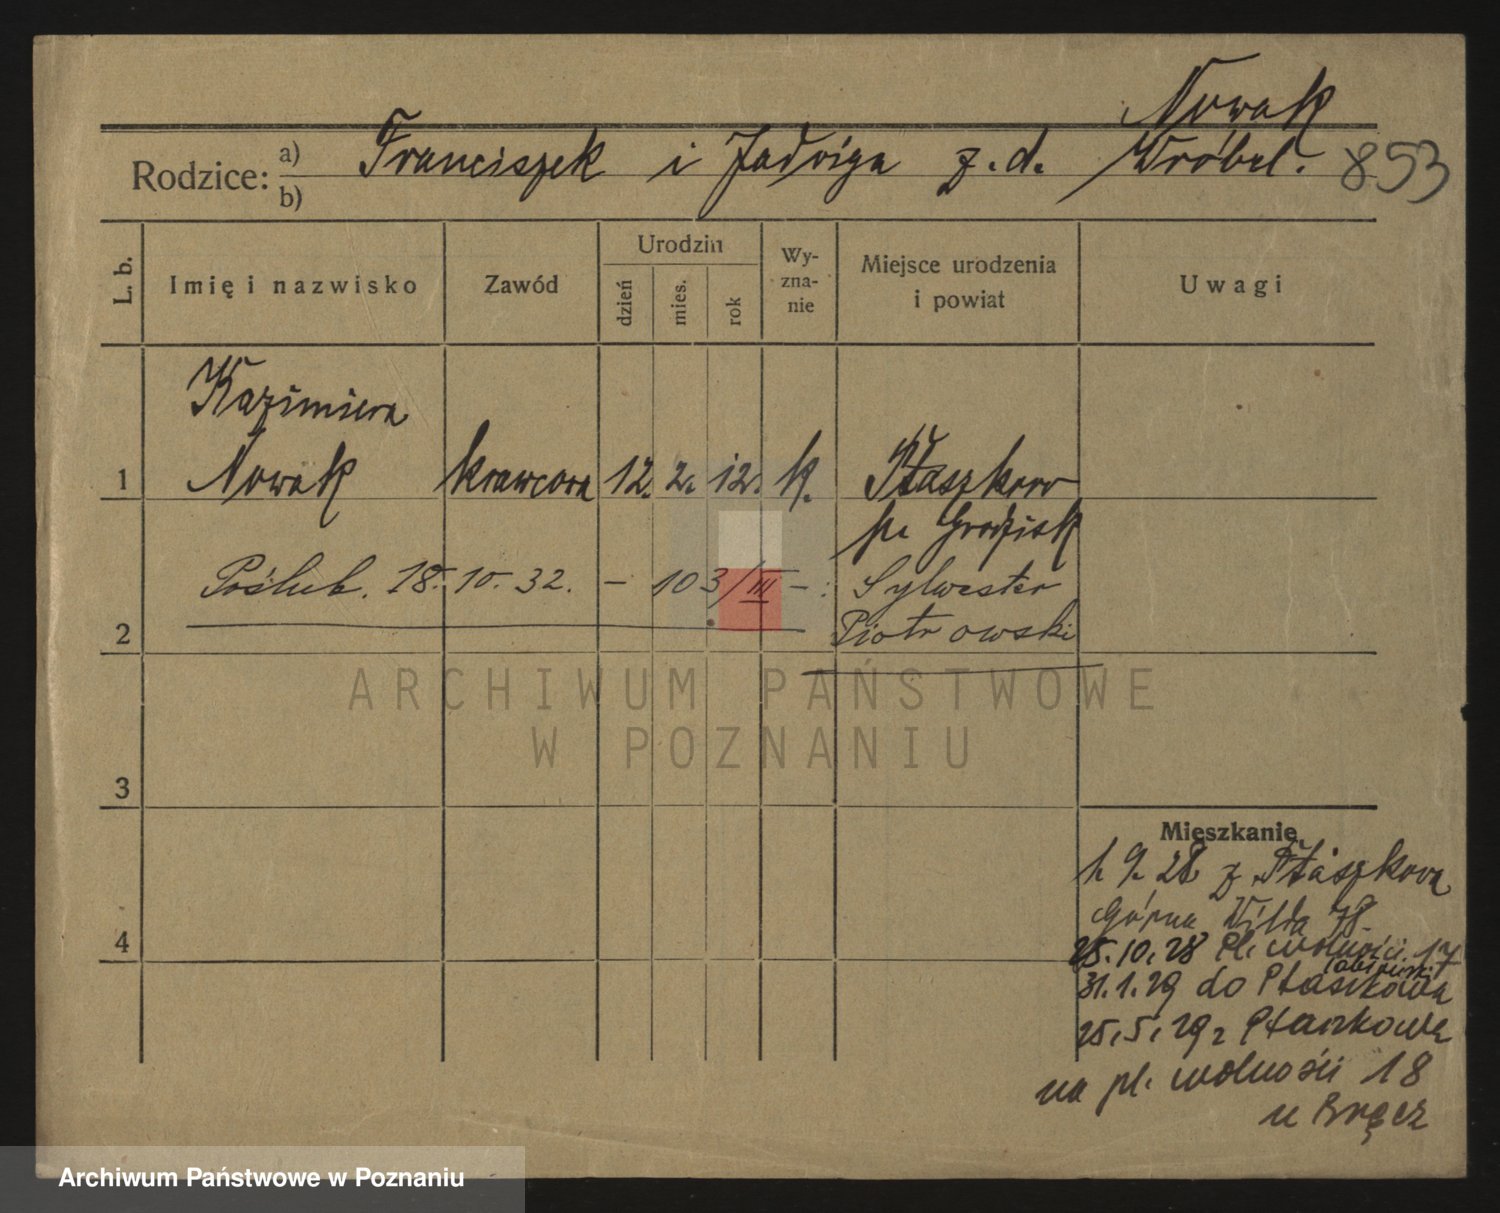 Nowak
Rodzice: a) b) Franciszek i Jadwiga z. d. Wróbel. 853
L. b. Imię i nazwisko Zawód Urodzin dzień mies. rok Wy-zna-nie Miejsce urodzenia i powiat Uwagi
Kazimiera
1 Nowak krawcowa 12. 2. 12. k. Ptaszkowo
p. Grodzisk
Poślub. 18. 10. 32. – 103/III – : Sylwester
2 Piotrowski
ARCHIWUM PAŃSTWOWE
W POZNANIU
3
Mieszkanie
1. 9. 28 z Ptaszkowa
Górna Wilda 78
4
25. 10. 28 Pl. wolności 17
31. 1. 29 do Ptaszkowa
25. 5. 29 z Ptaszkowa
na pl. wolności 18
u
Archiwum Państwowe w Poznaniu